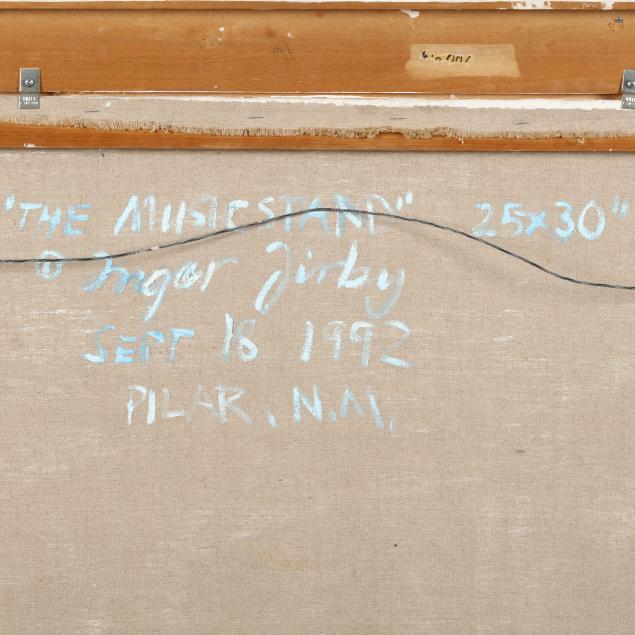 "THE MUSICSTAND" 25x30"
© Inger Jirby
SEPT 18 1992
PILAR, N.M.